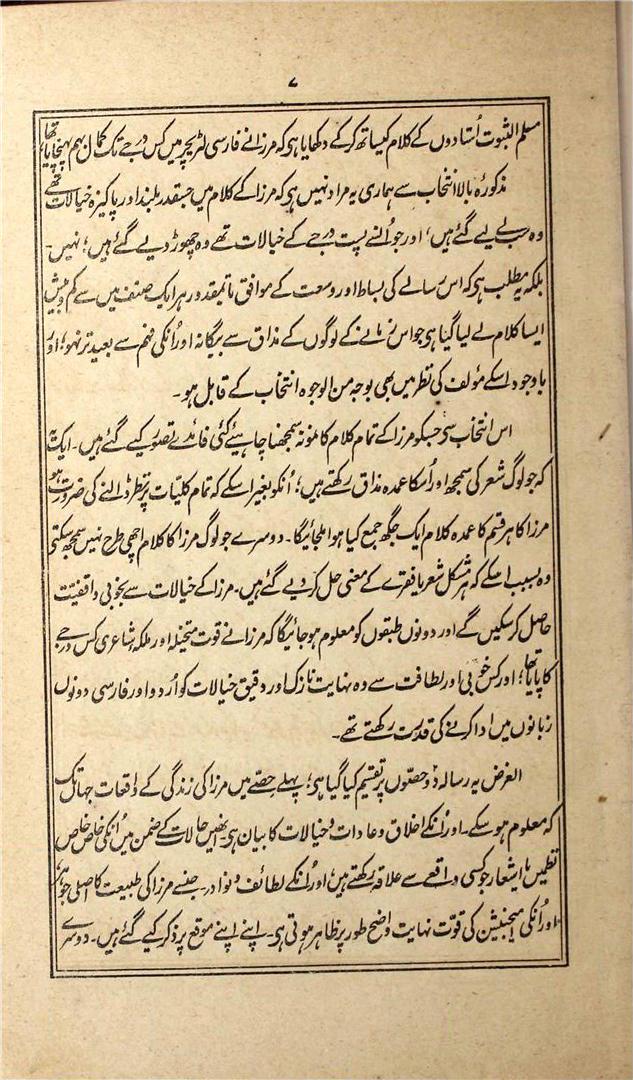 ۷
مسلم الثبوت اُستادوں کے کلام کیساتھ کرکے دکھایا ہی کہ مرزا نے فارسی لٹریچر میں کس درجے تک کمال بہم پہنچایا تھا
مذکورۂ بالا انتخاب سے ہماری یہ مراد نہیں ہی کہ مرزا کے کلام میں جسقدر بلند اور پاکیزہ خیالات تھے
وہ سب لے لیے گئے ہیں، اور جو اُنسے پست درجے کے خیالات تھے وہ چھوڑ دیے گئے ہیں؛ نہیں۔
بلکہ یہ مطلب ہی کہ اس رسالے کی بساط اور وسعت کے موافق تا بمقدور ہر ایک صنف میں سے کم و بیش
ایسا کلام لے لیا گیا ہی جو اس زمانے کے لوگوں کے مذاق سے بیگانہ اور اُنکی فہم سے بعید تر نہو؛ اور
باوجود اسکے مؤلف کی نظر میں بھی بوجہ من الوجوہ انتخاب کے قابل ہو۔
اس انتخاب سی جسکو مرزا کے تمام کلام کا نمونہ سمجھنا چاہیئے کئی فائدے تصور کیے گئے ہیں۔ ایک یہ
کہ جو لوگ شعر کی سمجھ اور اُسکا عمدہ مذاق رکھتے ہیں؛ اُنکو بغیر اسکے کہ تمام کلیات پر نظر ڈالنے کی ضرورت ہو
مرزا کا ہر قسم کا عمدہ کلام ایک جگھ جمع کیا ہوا ملجائیگا۔ دوسرے جو لوگ مرزا کا کلام اچھی طرح نہیں سمجھ سکتے
وہ بسبب اسکے کہ ہر مشکل شعر یا فقرے کے معنی حل کر دیے گئے ہیں۔ مرزا کے خیالات سے بخوبی واقفیت
حاصل کر سکیں گے اور دونوں طبقوں کو معلوم ہو جائیگا کہ مرزا نے قوت متخیلہ اور ملکۂ شاعری کس درجے
کا پایا تھا؛ اور کس خوبی اور لطافت سے وہ نہایت نازک اور دقیق خیالات کو اُردو اور فارسی دونوں
زبانوں میں ادا کرنے کی قدرت رکھتے تھے۔
الغرض یہ رسالہ دو حصوں پر تقسیم کیا گیا ہی؛ پہلے حصّے میں مرزا کی زندگی کے واقعات جہانتک
کہ معلوم ہو سکے۔ اور اُنکے اخلاق و عادات و خیالات کا بیان ہی۔ انھیں حالات کے ضمن میں اُنکی خاص خاص
نظمیں یا اشعار جو کسی واقعے سے علاقہ رکھتے ہیں؛ اور اُنکے لطائف و نوادر۔ جنسے مرزا کی طبیعت کا اصلی جوہر
اور اُنکی امیجنیشن کی قوّت نہایت واضح طور پر ظاہر ہوتی ہی۔ اپنے اپنے موقع پر ذکر کیے گئے ہیں۔ دوسرے